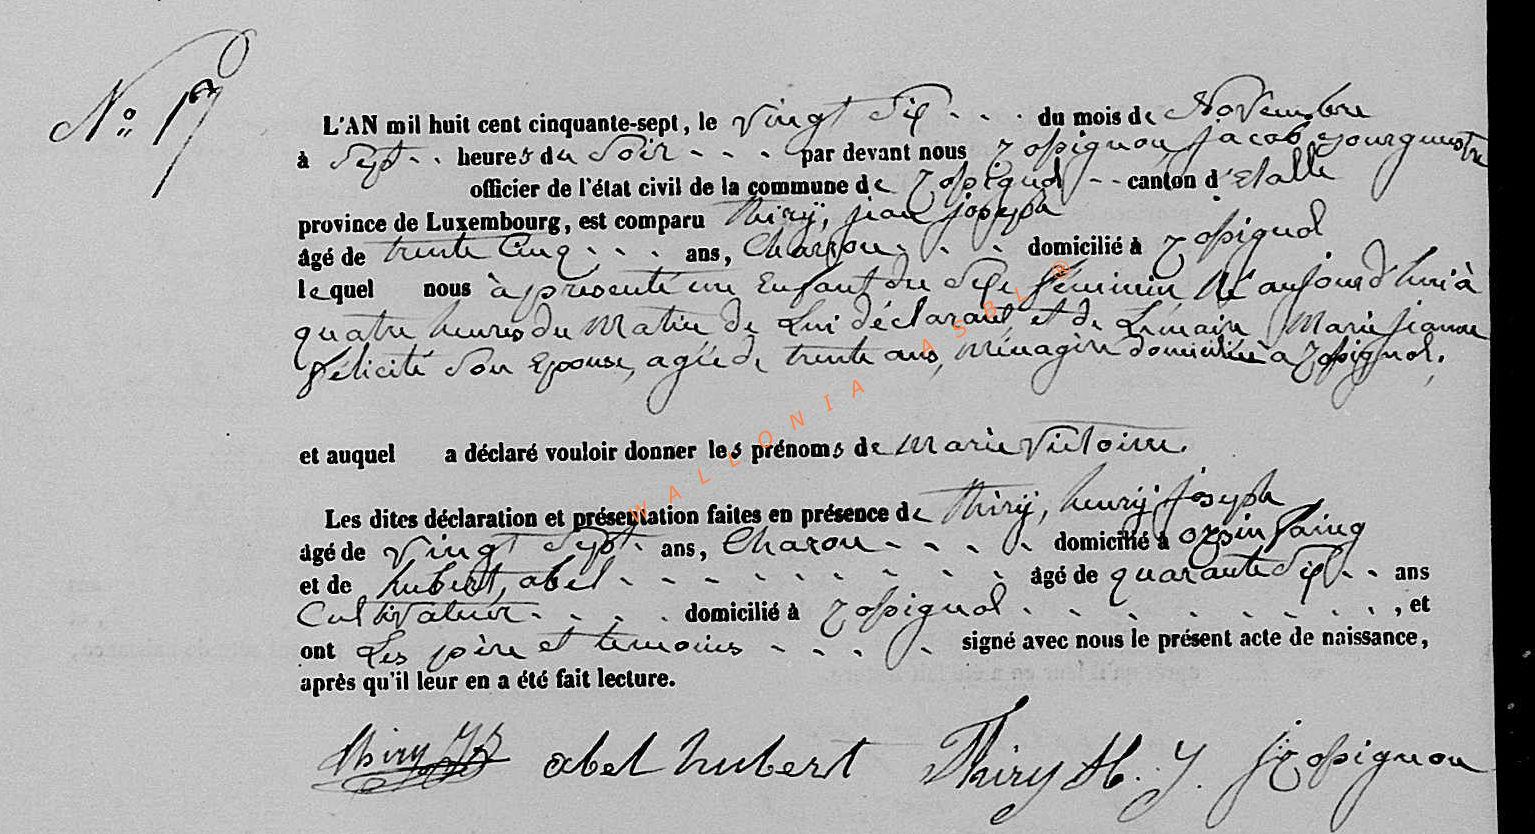 N° 17
L'AN mil huit cent cinquante-sept, le vingt Six . . . du mois de Novembre
à Sept . . heures du Soir . . . par devant nous jacob bourgmestre
officier de l'état civil de la commune de . . canton d'Etalle
province de Luxembourg, est comparu thirÿ, jean joseph
âgé de trente Cinq . . . ans, Charron . . . domicilié à
lequel nous à présenté un Enfant du Sexe féminin, Né aujourd'hui à
quatre heures du Matin de Lui déclarant, et de Lemaire Marie jeanne
félicité Son Epouse, agée de trente ans, Ménagère domiciliée à
et auquel a déclaré vouloir donner les prénoms de Marie Victoire.
Les dites déclaration et présentation faites en présence de thirÿ, henrÿ joseph
âgé de vingt Sept . ans, Charon . . . . domicilié à orsinfaing
et de hubert, abel . . . . . . . . . âgé de quarante Six . . ans
Cultivateur . . . . domicilié à . . . . . . . . , et
ont Les père et temoins . . . . signé avec nous le présent acte de naissance,
après qu'il leur en a été fait lecture.
thiry JJ abel hubert Thiry H. J.
WALLONIA ASBL ®